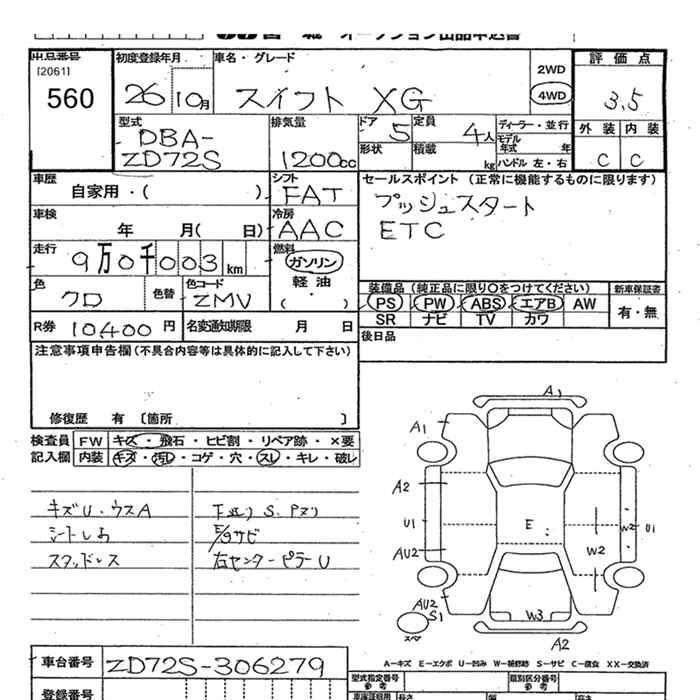 オークション出品申込書
出品番号 初度登録年月 車名・グレード 評価点
[2061]
560 26 10月 スイフト XG 2WD 4WD 3.5
型式 排気量 ドア 定員 ディーラー・並行 外装 内装
DBA- 5 4人 モデル年式 年
ZD72S 1200cc 形状 積載 kg ハンドル 左・右 C C
車歴 シフト セールスポイント (正常に機能するものに限ります)
自家用・( ) FAT プッシュスタート
車検 冷房
年 月( 日) AAC ETC
走行 燃料
9万0千003km ガソリン
色 色替 色コード 軽油 装備品 (純正品に限り○をつけてください) 新車保証書
クロ ZMV ( ) PS PW ABS エアB AW 有・無
R券 10400円 名変通知期限 月 日 SR ナビ TV カワ
注意事項申告欄(不具合内容等は具体的に記入して下さい) 後日品
修復歴 有 〔箇所 〕
検査員 FW キズ・飛石・ヒビ割・リペア跡・×要
記入欄 内装 キズ・汚レ・コゲ・穴・スレ・キレ・破レ
キズU・ウスA 下廻りS.Pヌリ
シートしお E/gサビ
スタッドレス 右センターピラーU
A1
A1
A2
U1 E W2 U1
AU2 W2
AU2
S1 W3
スペア
A2
A-キズ E-エクボ U-凹み W-補修跡 S-サビ C-腐食 XX-交換済
車台番号 ZD72S-306279 型式指定番号 類別区分番号
参考 参考
登録番号 長さ 幅 高さ